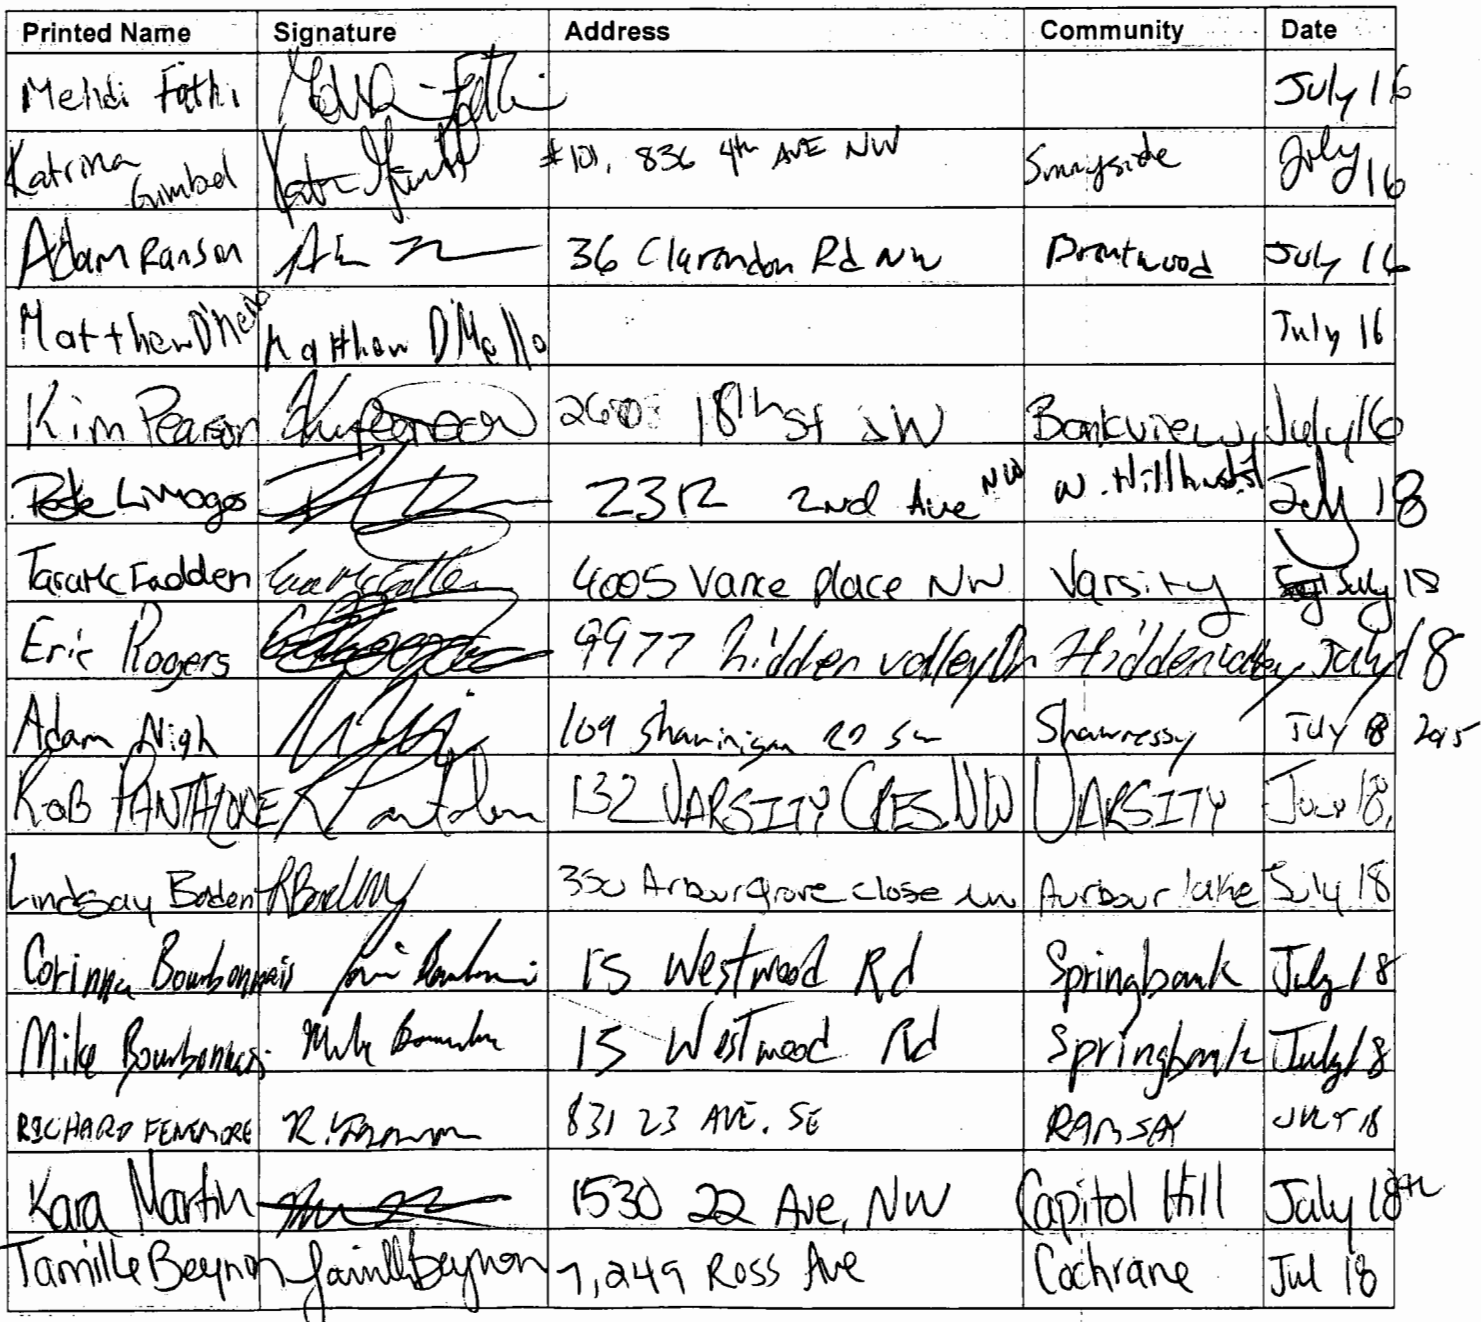 Printed Name Signature Address Community Date
Mehdi Fathi July 16
Katrina Gimbel #101, 836 4th AVE NW Sunnyside July 16
Adam Ranson 36 Clarendon Rd NW Brentwood July 16
Matthew D'Mello Matthew D'Mello July 16
Kim Pearson 18th St SW Bankview July 16
Limoges 2312 2nd Ave NW W. Hillhurst July 18
Tara McFadden Tara McFadden 4005 Varce place NW Varsity July 18
Eric Rogers 9977 hidden valley Dr Hidden valley July 18
Adam Nigh 109 Rd SW July 18 2015
Rob PANTALONE R Pantalone 132 VARSITY CRES. NW VARSITY July 18,
Lindsay Boden 350 Arbourgrove close NW Aurbour lake July 18
Corinna Bourbonnais 15 Westwood Rd Springbank July 18
Mike Bourbonnais Mike 15 Westwood Rd Springbank July 18
RICHARD FENEMORE 831 23 AVE. SE RAMSAY JULY 18
Kara Martin 1530 22 Ave, NW Capitol Hill July 18th
Tamille Beynon Tamille Beynon 7, 249 Ross Ave Cochrane Jul 18